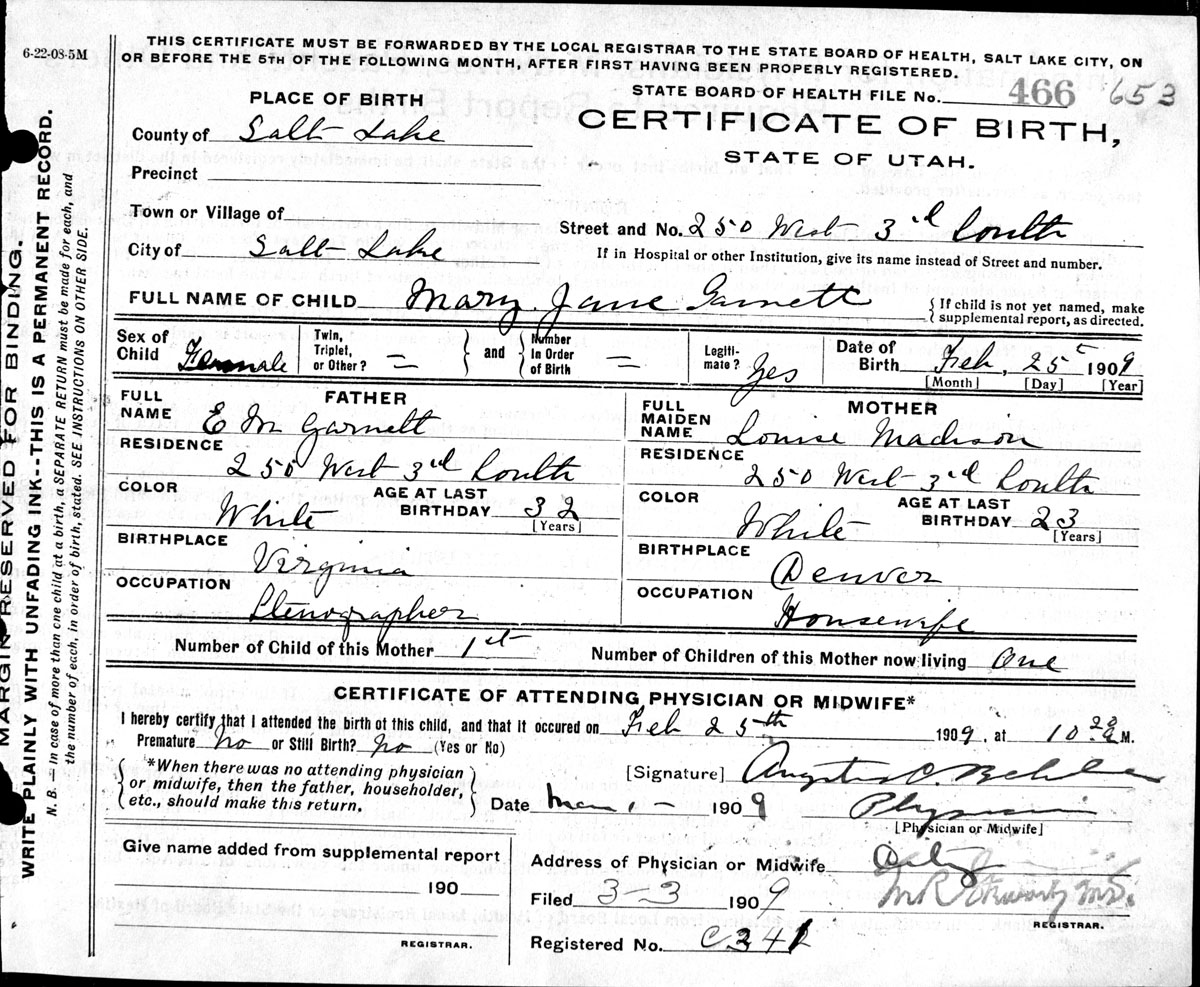 6-22-08-5M
THIS CERTIFICATE MUST BE FORWARDED BY THE LOCAL REGISTRAR TO THE STATE BOARD OF HEALTH, SALT LAKE CITY, ON
OR BEFORE THE 5TH OF THE FOLLOWING MONTH, AFTER FIRST HAVING BEEN PROPERLY REGISTERED.
STATE BOARD OF HEALTH FILE No. 466 653
PLACE OF BIRTH
CERTIFICATE OF BIRTH,
STATE OF UTAH.
County of Salt Lake
Precinct
Town or Village of
Street and No. 250 West 3rd South
City of Salt Lake
If in Hospital or other Institution, give its name instead of Street and number.
FULL NAME OF CHILD Mary Jane Garnett
{ If child is not yet named, make
supplemental report, as directed.
Sex of Child Female
Twin, Triplet, or Other? —
and
Number In Order of Birth —
Legiti-mate? Yes
Date of Birth Feb, 25 1909
[Month] [Day] [Year]
FATHER
FULL NAME E M Garnett
RESIDENCE
250 West 3rd South
COLOR White
AGE AT LAST BIRTHDAY 32
[Years]
BIRTHPLACE
Virginia
OCCUPATION
Stenographer
MOTHER
FULL MAIDEN NAME Louise Madison
RESIDENCE
250 West 3rd South
COLOR White
AGE AT LAST BIRTHDAY 23
[Years]
BIRTHPLACE
Denver
OCCUPATION
Housewife
Number of Child of this Mother 1st
Number of Children of this Mother now living One
CERTIFICATE OF ATTENDING PHYSICIAN OR MIDWIFE*
I hereby certify that I attended the birth of this child, and that it occured on Feb 25th 1909, at 10 M.
Premature No or Still Birth? No (Yes or No)
{ *When there was no attending physician
or midwife, then the father, householder,
etc., should make this return. }
[Signature]
Date 1909
Physician
[Physician or Midwife]
Give name added from supplemental report
190
REGISTRAR.
Address of Physician or Midwife City
Filed 3-3 1909
REGISTRAR.
Registered No. C341
MARGIN RESERVED FOR BINDING.
WRITE PLAINLY WITH UNFADING INK--THIS IS A PERMANENT RECORD.
N. B. — In case of more than one child at a birth, a SEPARATE RETURN must be made for each, and
the number of each, in order of birth, stated. SEE INSTRUCTIONS ON OTHER SIDE.